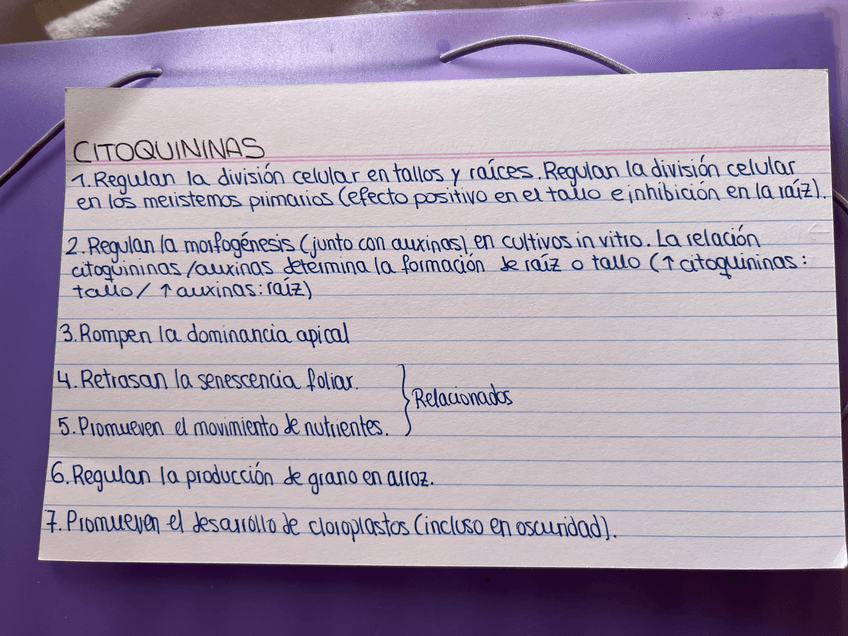 CITOQUININAS
1. Regulan la división celular en tallos y raíces. Regulan la división celular
en los meristemos primarios (efecto positivo en el tallo e inhibición en la raíz).
2. Regulan la morfogénesis (junto con auxinas) en cultivos in vitro. La relación
citoquininas/auxinas determina la formación de raíz o tallo (↑ citoquininas:
tallo/ ↑ auxinas: raíz)
3. Rompen la dominancia apical
4. Retrasan la senescencia foliar.
Relacionados
5. Promueven el movimiento de nutrientes.
6. Regulan la producción de grano en arroz.
7. Promueven el desarrollo de cloroplastos (incluso en oscuridad).